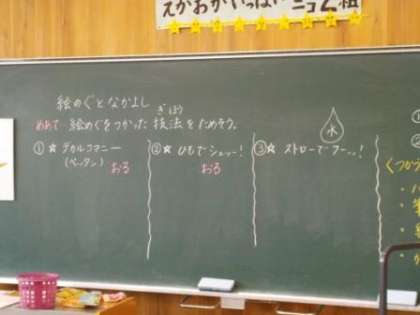 えがおがいっぱい
ニコ2組
絵のぐとなかよし
めあて 絵のぐをつかった技法をためそう。
ぎほう
①☆ デカルコマニー
(ペッタン)
おる
②☆ ひもでシュッー!
おる
③☆ ストローでフーッ!
水
①
②
くつかう